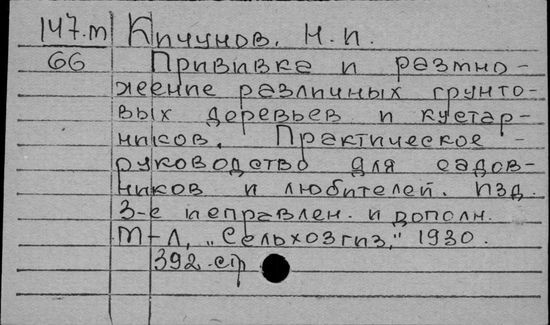 147.m Кичунов, Н. И.
66 Прививка и размно-
жение различных грунто-
вых деревьев и кустар-
ников. Практическое -
руководство для садов-
ников и любителей. Изд.
3-е исправлен. и дополн.
М-Л, „Сельхозгиз," 1930.
392 стр